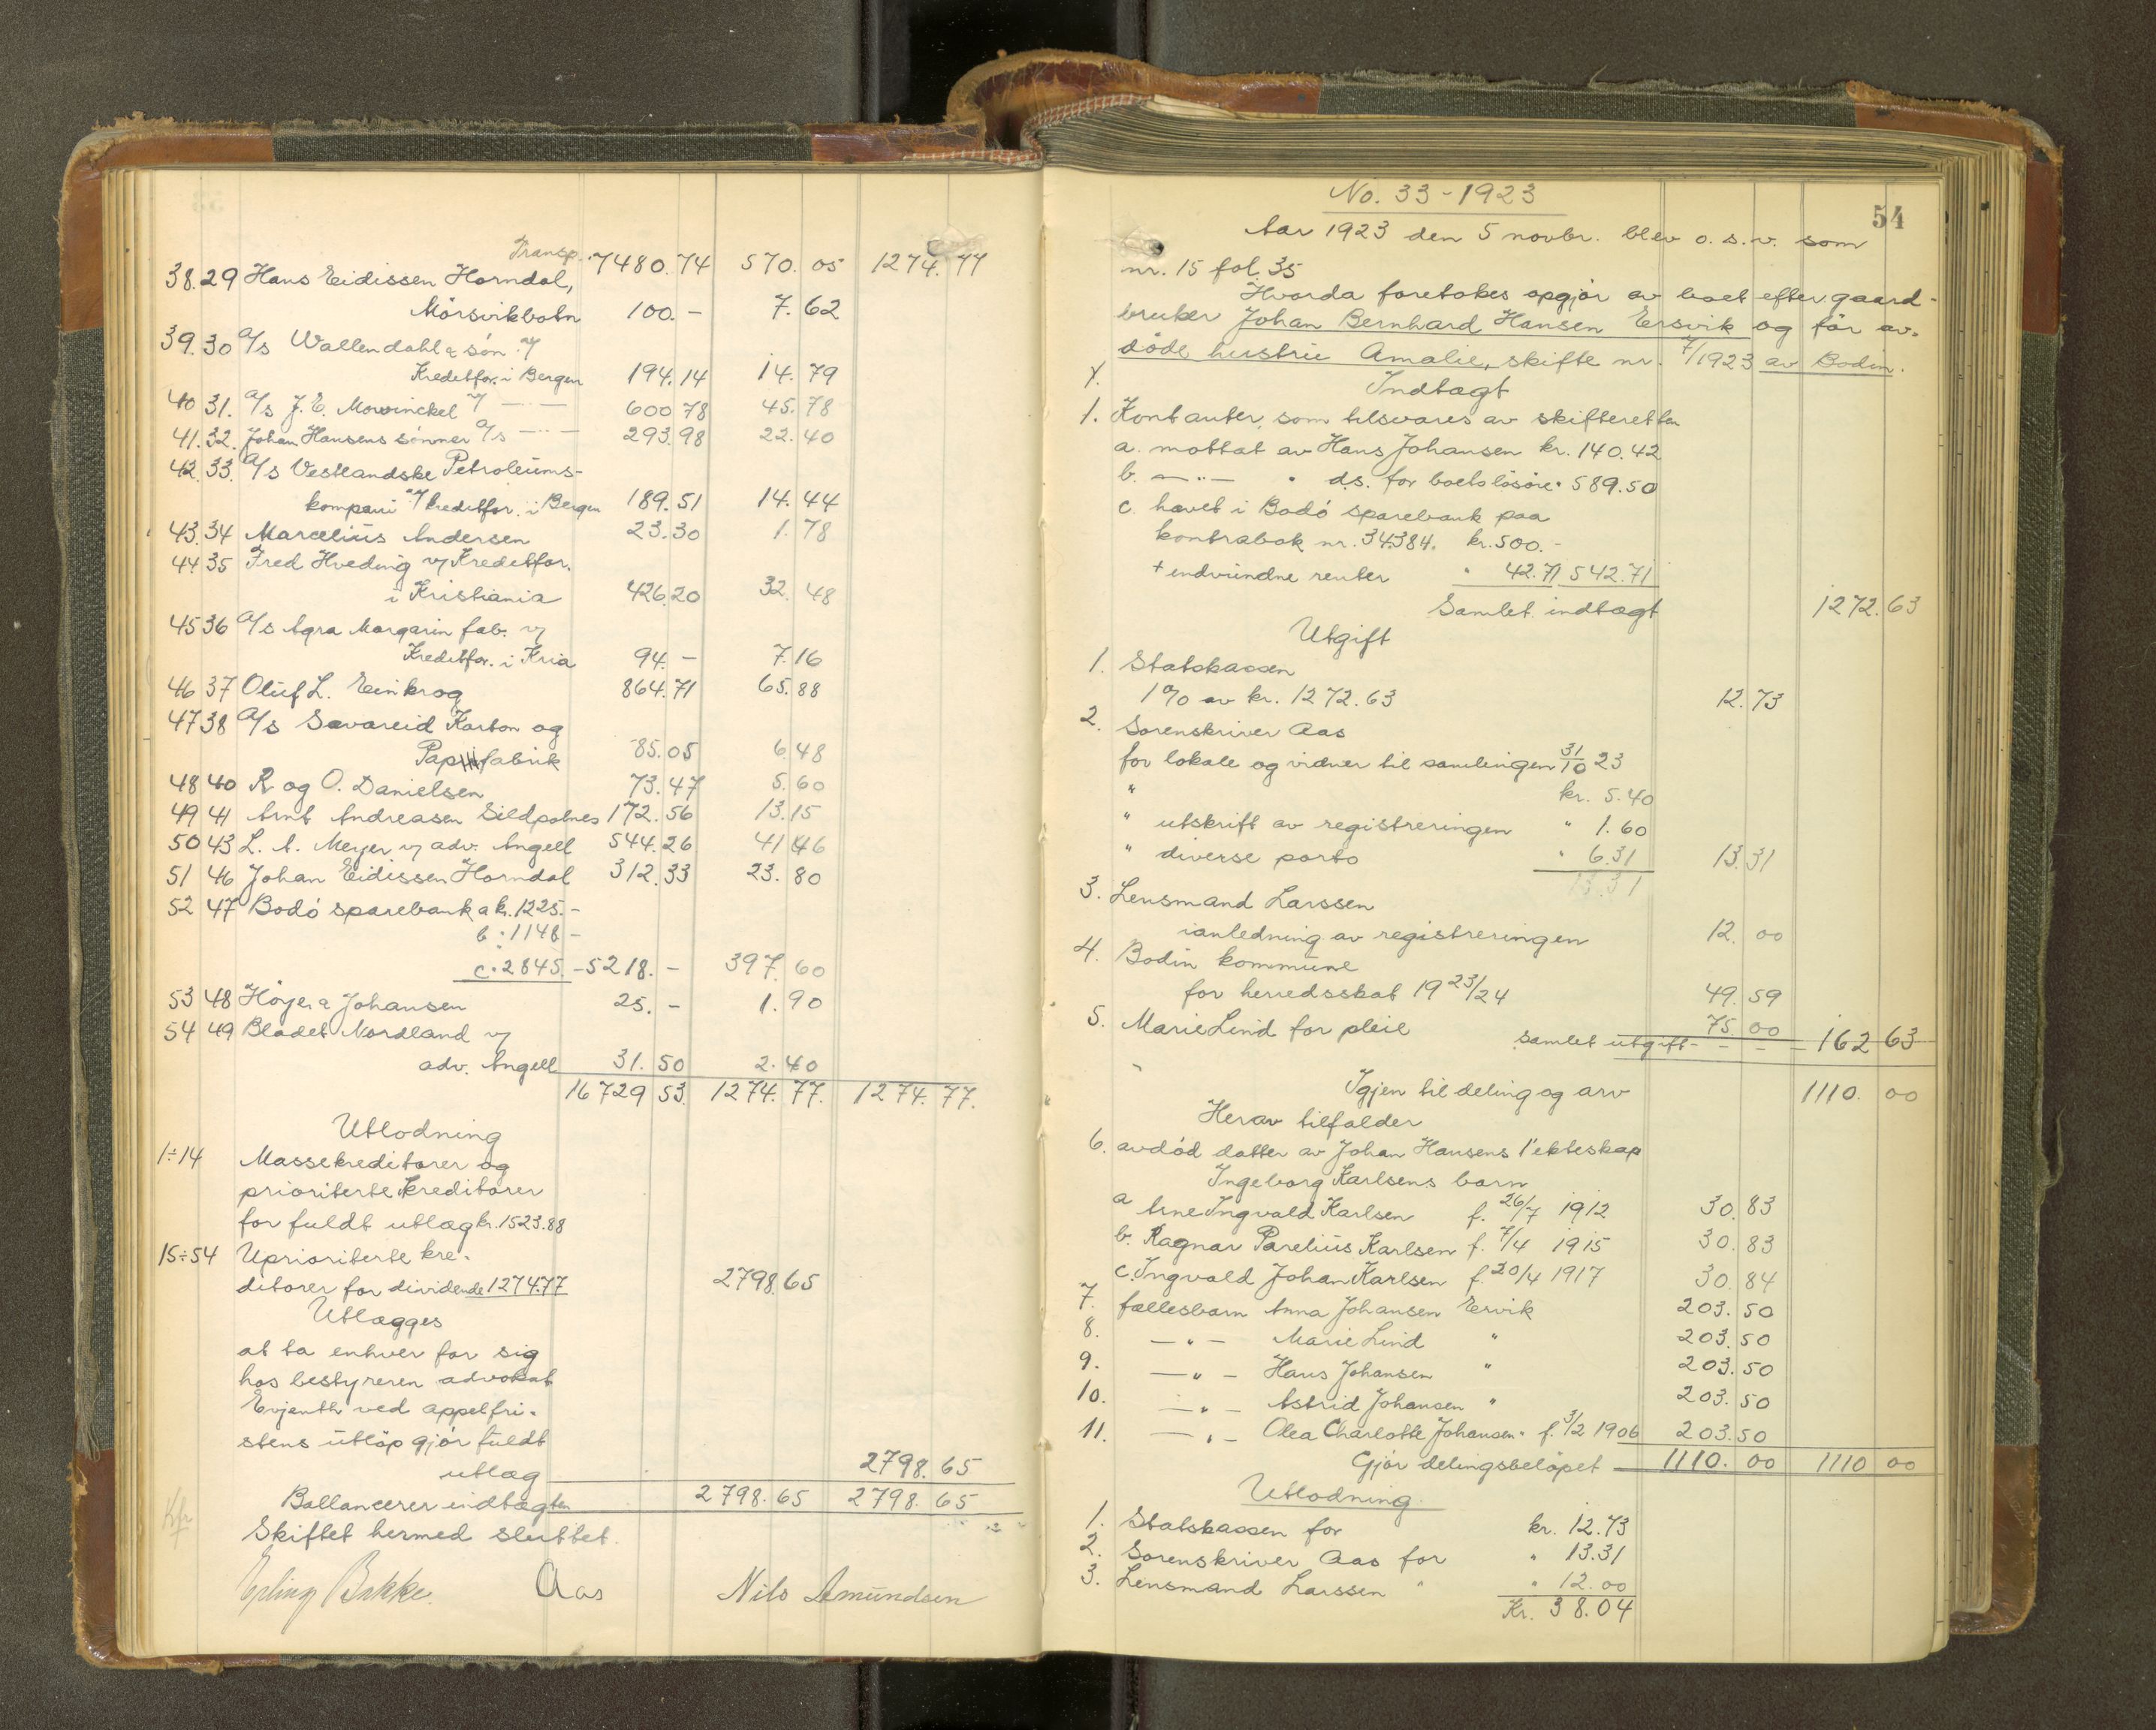 Transp. 7480.74 570.05 1274.77
38.29 Hans Eidissen Horndal,
Mörsvikbotn 100.- 7.62
39.30 A/s Wallendahl & søn v/
Kreditfor. i Bergen 194.14 14.79
40 31. A/s J. E. Mowinckel v/ — — 600 78 45.78
41.32. Johan Hansens sønner A/s — — 293.98 22.40
42.33. A/s Vestlandske Petroleums-
kompani v/ kreditfor. i Bergen 189.51 14.44
43.34 Marcelius Andersen 23.30 1.78
44.35 Fred Hveding v/ Kreditfor.
i Kristiania 426.20 32.48
45 36 A/s Agra Margarin fab. v/
Kreditfor. i Kria 94.- 7.16
46 37 Oluf L. Einkrog 864.71 65.88
47 38 A/s Sævareid Karton og
Papfabrik 85.05 6.48
48 40 R. og O. Danielsen 73.47 5.60
49 41 Arnt Andreasen Sildpolnes 172.56 13.15
50 43 L. A. Meyer v/ adv. Angell 544.26 41 46
51 46 Johan Eidissen Horndal 312.33 23.80
52 47 Bodö sparebank a kr. 1225.-
b " 1148 -
c " 2845. - 5218.- 397.60
53 48 Höyer & Johansen 25.- 1.90
54 49 Bladet Nordland v/
adv. Angell 31.50 2.40
16729 53. 1274.77. 1274.77.
Utlodning
1÷14 Massekreditorer og
prioriterte Kreditorer
for fuldt utlæg kr. 1523.88
15÷54 Uprioriterte kre-
ditorer for dividende 1274.77 2798.65
Utlægges
at ta enhver for sig
hos bestyreren advokat
Evjenth ved appelfri-
stens utløp gjør fuldt
utlæg 2798.65
Ballancerer indtægten 2798.65 2798.65
Skiftet hermed sluttet.
Erling Bakke. Aas Nils Amundsen
54
No. 33 - 1923
Aar 1923 den 5 novbr. blev o.s.v. som
nr. 15 fol. 35
Hvorda foretokes opgjør av boet efter gaard-
bruker Johan Bernhard Hansen Ersvik og før av-
døde hustru Amalie, skifte nr. 7/1923 av Bodin.
Indtægt
1. Kontanter, som tilsvares av skifteretten
a. mottat av Hans Johansen kr. 140.42
b. — " — " d.s. for boets løsøre " 589.50
c. hævet i Bodö sparebank paa
kontrabok nr. 34384. kr. 500.-
+ indvundne renter " 42.71 542.71
Samlet indtægt 1272.63
Utgift
1. Statskassen
1% av kr. 1272.63 12.73
2. Sorenskriver Aas
for lokale og vidner til samlingen 31/10 23
" kr. 5.40
" utskrift av registreringen " 1.60
" diverse porto " 6.31 13.31
13.31
3. Lensmand Larssen
i anledning av registreringen 12.00
4. Bodin kommune
for herredsskat 1923/24 49.59
5. Marie Lind for pleie 75.00
samlet utgift - - - 162 63
Igjen til deling og arv 1110.00
Herav tilfalder
6. avdød datter av Johan Hansens 1' ekteskap
Ingeborg Karlsens barn
a Arne Ingvald Karlsen f. 26/7 1912 30.83
b. Ragnar Parelius Karlsen f. 7/4 1915 30.83
c. Ingvald Johan Karlsen f. 20/4 1917 30.84
7. fællesbarn Anna Johansen Ersvik 203.50
8. — " — Marie Lind " 203.50
9. — " — Hans Johansen " 203.50
10. — " — Astrid Johansen " 203.50
11. — " — Olea Charlotte Johansen " f. 3/2 1906 203.50
Gjør delingsbeløpet 1110.00 1110 00
Utlodning
1. Statskassen for kr. 12.73
2. Sorenskriver Aas for " 13.31
3. Lensmand Larssen " " 12.00
Kr. 38.04